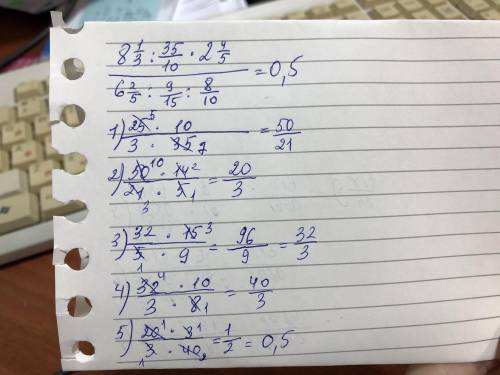 8 1/3 : 35/10 · 2 4/5
6 2/5 : 9/15 : 8/10 = 0,5
1) 25⁵ · 10 / 3 · 35 7 = 50/21
2) 50¹⁰ · 14² / 21 3 · 5 1 = 20/3
3) 32 · 15³ / 5 1 · 9 = 96/9 = 32/3
4) 32⁴ · 10 / 3 · 8 1 = 40/3
5) 20¹ · 3¹ / 3 1 · 40 2 = 1/2 = 0,5